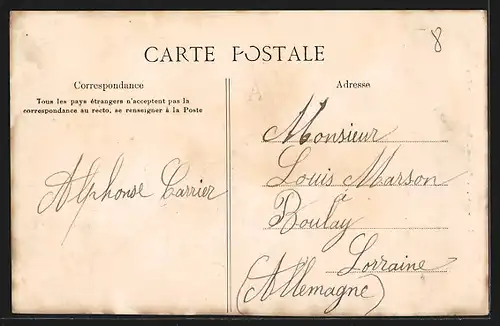 8
CARTE POSTALE
Correspondance
Tous les pays étrangers n'acceptent pas la
correspondance au recto, se renseigner à la Poste
Alphonse Carrier
Adresse
Monsieur
Louis Marson
Boulay
Lorraine
(Allemagne)